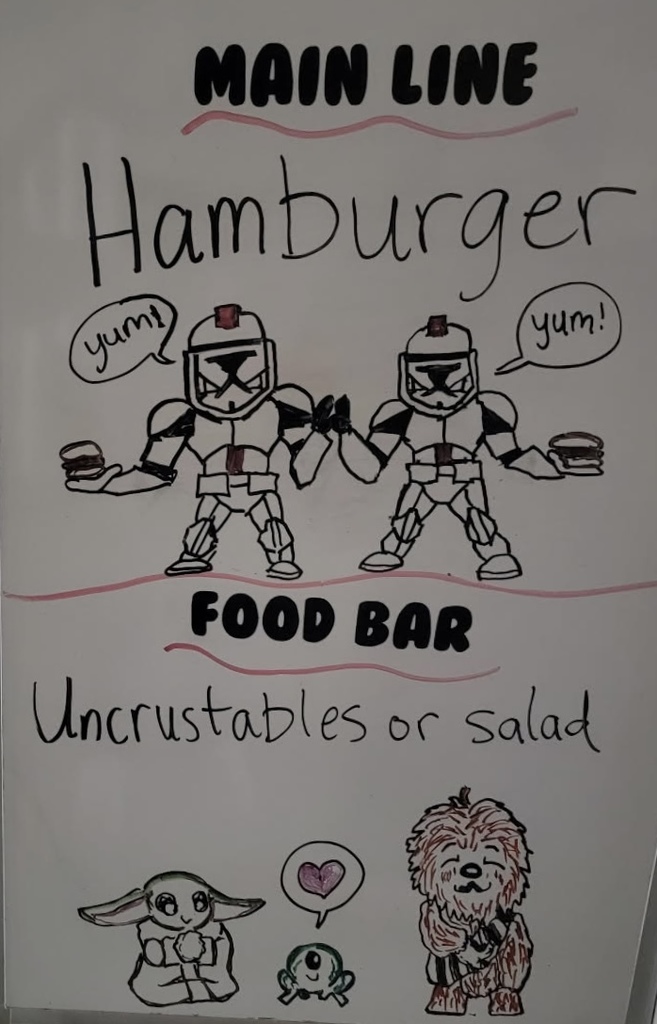 MAIN LINE
Hamburger
yum!
yum!
FOOD BAR
Uncrustables or salad